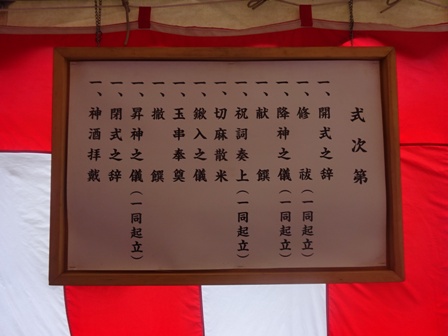 式次第
一、開式之辞
一、修祓（一同起立）
一、降神之儀（一同起立）
一、献饌
一、祝詞奏上（一同起立）
一、切麻散米
一、鍬入之儀
一、玉串奉奠
一、撤饌
一、昇神之儀（一同起立）
一、閉式之辞
一、神酒拝戴